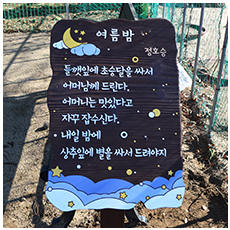 여름밤
정호승
들깻잎에 초승달을 싸서
어머님께 드린다.
어머니는 맛있다고
자꾸 잡수신다.
내일 밤에
상추잎에 별을 싸서 드려야지